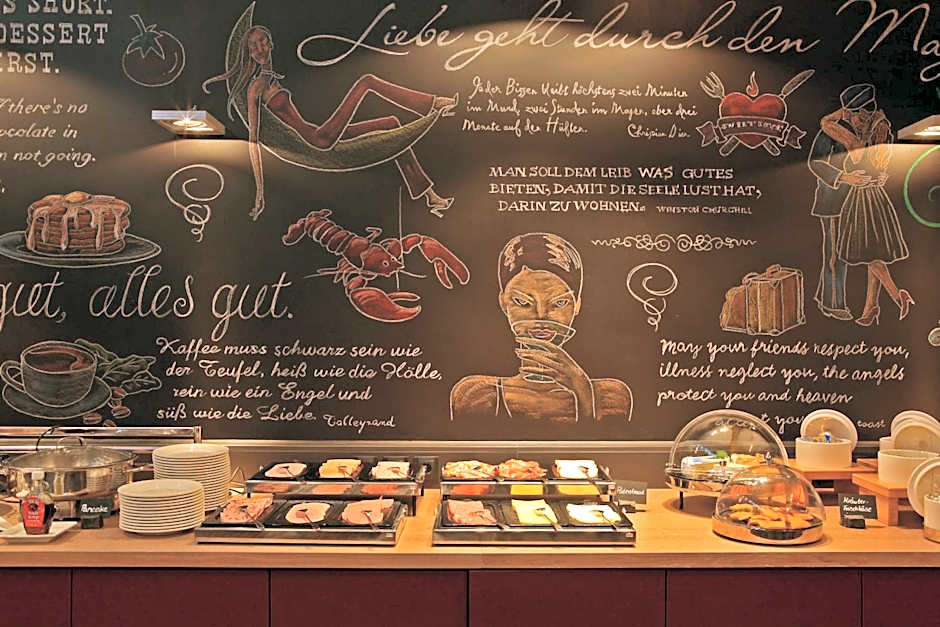 S SHORT.
DESSERT
ERST.
there's no
ocolate in
n not going.
Liebe geht durch den Ma
Jeder Bissen bleibt höchstens zwei Minuten
im Mund, zwei Stunden im Magen, aber drei
Monate auf den Hüften. Christian Dior
SWEET LOVE
MAN SOLL DEM LEIB WAS GUTES
BIETEN, DAMIT DIE SEELE LUST HAT,
DARIN ZU WOHNEN. WINSTON CHURCHILL
gut, alles gut.
Kaffee muss schwarz sein wie
der Teufel, heiß wie die Hölle,
rein wie ein Engel und
süß wie die Liebe. Talleyrand
May your friends respect you,
illness neglect you, the angels
protect you and heaven
accept you toast
Pancake
Kräuter-
frischkäse